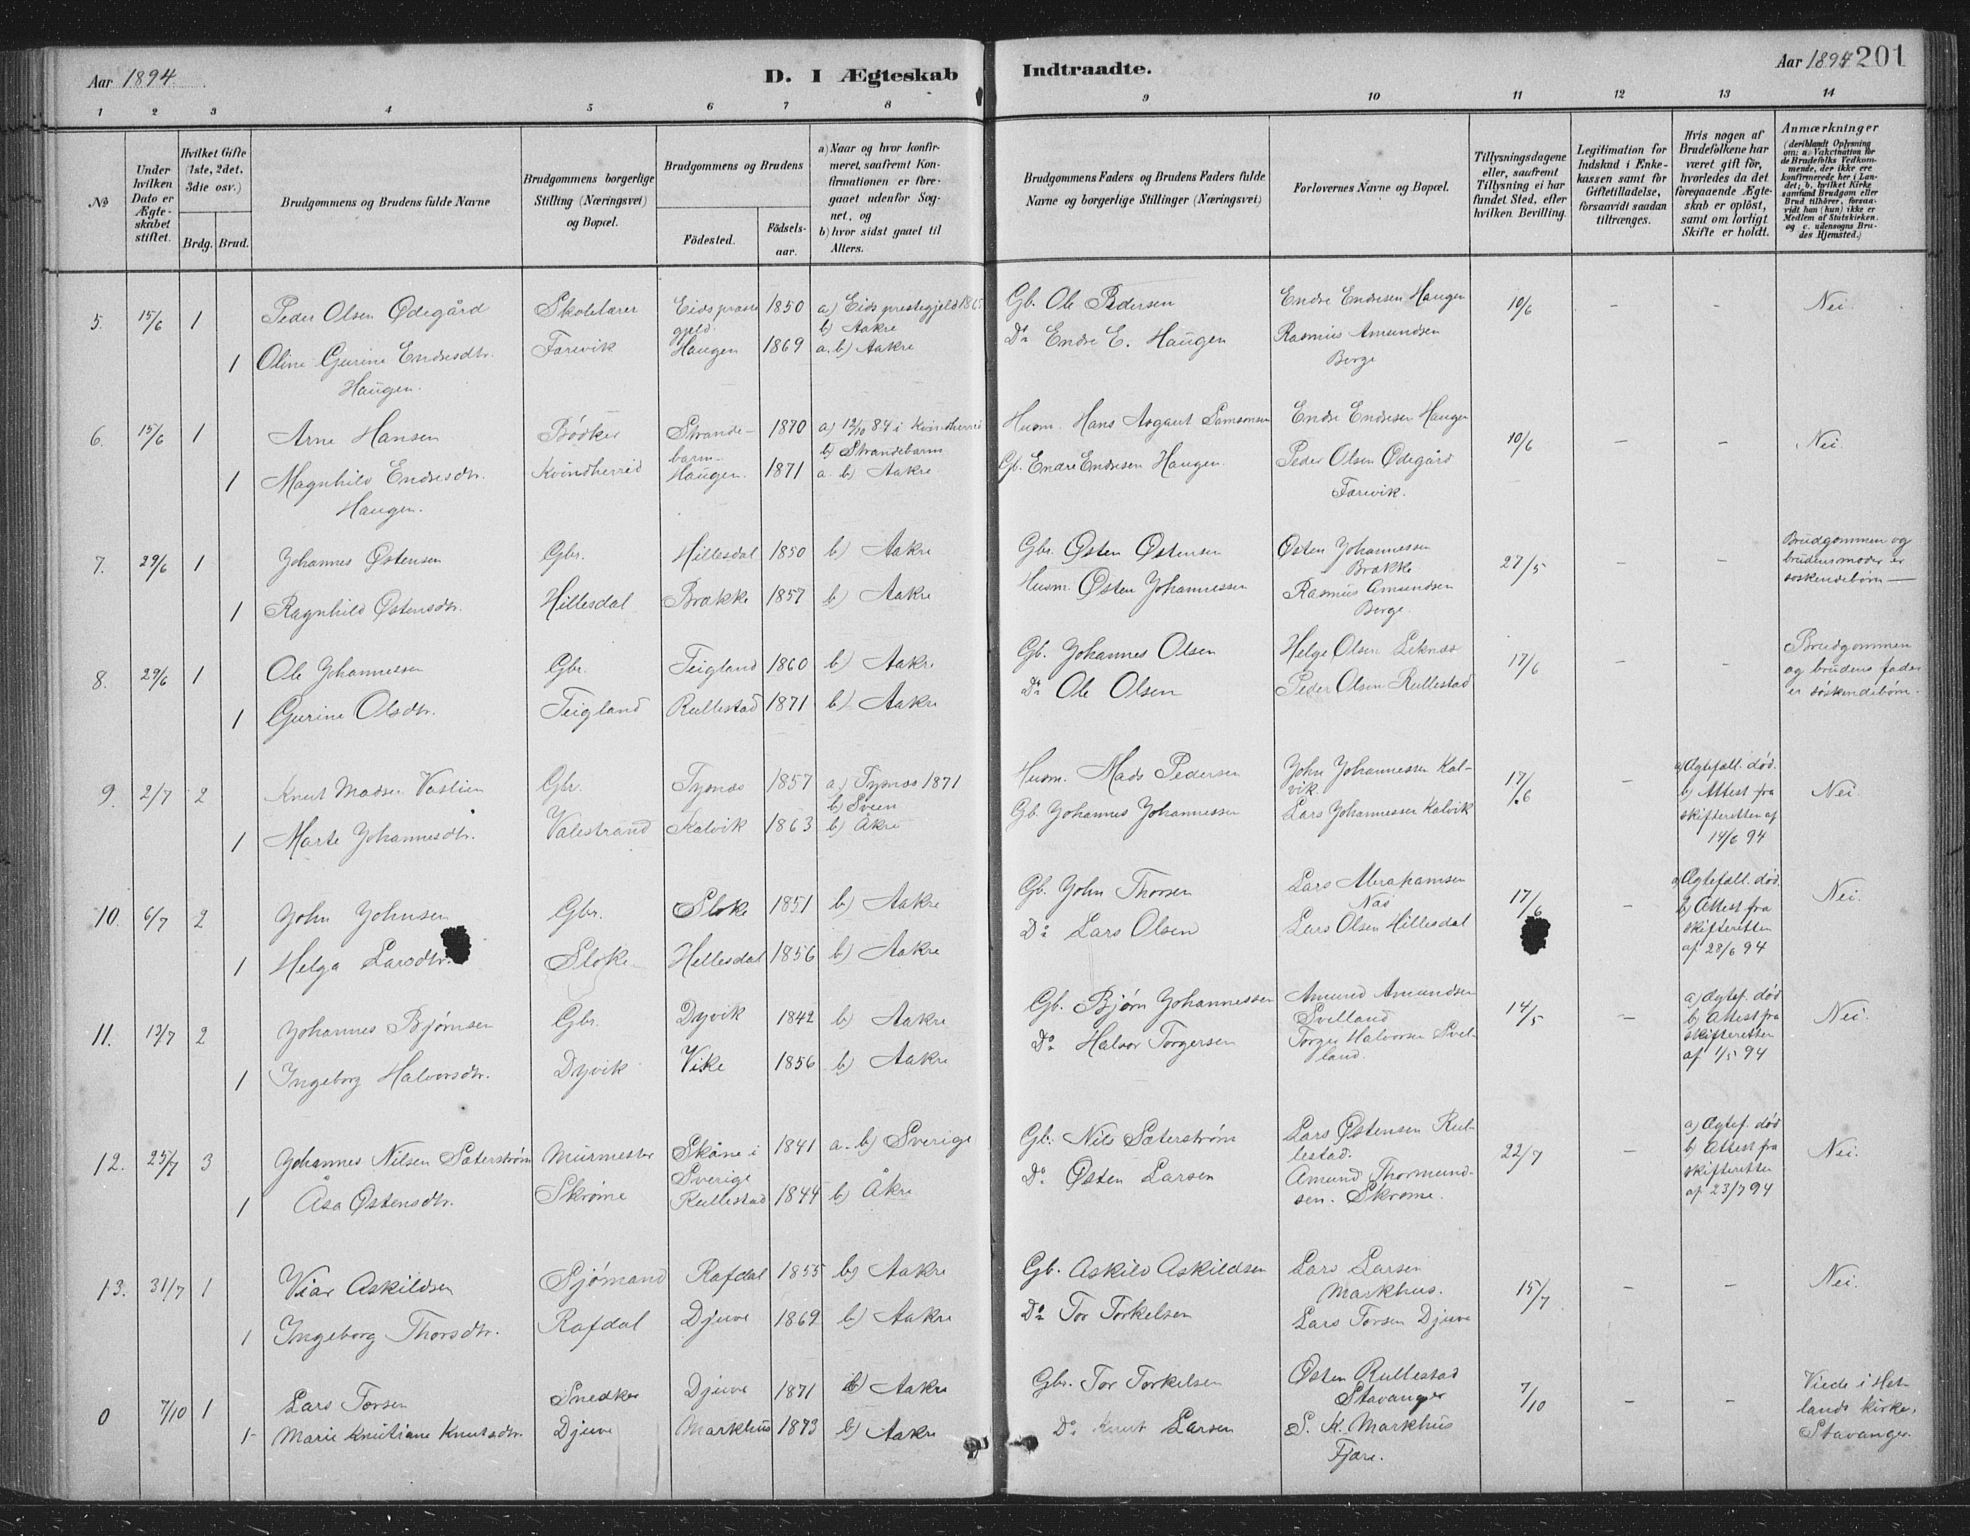 Aar 1894.
D. I Ægteskab Indtraadte.
Aar 1894 201
1 2 3 4 5 6 7 8 9 10 11 12 13 14
No
Under hvilken Dato er Ægteskabet stiftet.
Hvilket Gifte (1ste, 2det, 3die osv.)
Brdg. Brud.
Brudgommens og Brudens fulde Navne
Brudgommens borgerlige Stilling (Næringsvei) og Bopæl.
Brudgommens og Brudens
Födested. Födselsaar.
a) Naar og hvor konfirmeret, saafremt Konfirmationen er foregaaet udenfor Sognet, og
b) hvor sidst gaaet til Alters.
Brudgommens Faders og Brudens Faders fulde Navne og borgerlige Stillinger (Næringsvei)
Forlovernes Navne og Bopæl.
Tillysningsdagene eller, saafremt Tillysning ei har fundet Sted, efter hvilken Bevilling.
Legitimation for Indskud i Enkekassen samt for Giftetilladelse, forsaavidt saadan tiltrænges.
Hvis nogen af Brudefolkene har været gift för, hvorledes da det foregaaende Ægteskab er oplöst, samt om lovligt Skifte er holdt.
Anmærkninger (deriblandt Oplysning om: a. Vakcination for de Brudefolks Vedkommende, der ikke ere konfirmerede her i Landet; b. hvilket Kirkesamfund Brudgom eller Brud tilhörer, forsaavidt han (hun) ikke er Medlem af Statskirken. og c. udensogns Brudes Hjemsted.)
5. 15/6 1 Peder Olsen Ødegård Skolelærer Eids præstegjeld 1850 a) Eids prestegjeld b) Aakre Gb. Ole Pedersen Endre Endresen Haugen 10/6 – – Nei.
1 Oline Gurine Endresdtr. Haugen. Farevik Haugen 1869 a. b) Aakre Do Endre E. Haugen Rasmus Amundsen Berge
6. 15/6 1 Arne Hansen Bødker Strandebarm 1870 a) 12/10 84 i Kvindherred b) Strandebarm Husm. Hans Asgaut Samsonsen Endre Endresen Haugen 10/6 – – Nei.
1 Magnhild Endresdtr. Haugen. Kvindherred Haugen. 1871 a. b) Aakre Gb. Endre Endresen Haugen Peder Olsen Ødegård Farevik.
7. 29/6 1 Johannes Østensen Gbr. Hillesdal 1850 b) Aakre Gbr. Østen Østensen Østen Johannessen Brække 27/5 – – Brudgommen og brudens moder er søskendebørn
1 Ragnhild Østensdtr. Hillesdal Brække 1857 b) Aakre Husm. Østen Johannessen Rasmus Amundsen Berge.
8. 29/6 1 Ole Johannessen Gbr. Teigland 1860 b) Aakre Gb. Johannes Olsen Helge Olsen Eknæs 17/6 – – Brudgommen og brudens fader er søskendebørn.
1 Gurine Olsdtr. Teigland Rullestad 1871 b) Aakre Do Ole Olsen Peder Olsen Rullestad
9. 2/7 2 Knut Madsen Vaslien Gbr. Tysnæs 1857 a) Tysnæs 1871 b) Sveen Husm. Mads Pedersen John Johannessen Kalvik. 17/6 – a) Ægtefall. død. b) Attest fra skifteretten af 14/6 94 Nei.
1 Marte Johannesdtr. Valestrand Kalvik 1863 b) Åkre Gb. Johannes Johannessen Lars Johannessen Kalvik
10. 6/7 2 John Johnsen Gbr. Sloke 1851 b) Aakre Gb. John Thorsen Lars Abrahamsen Næs 17/6 – a) Ægtefall. død. b) Attest fra skifteretten af 28/6 94 Nei.
1 Helga Larsdtr. Sloke Hillesdal 1856 b) Aakre Do Lars Olsen Lars Olsen Hillesdal
11. 13/7 2 Johannes Bjørnsen Gbr. Dyvik 1842 b) Aakre Gb. Bjørn Johannessen Amund Amundsen Svelland 14/5 – a) Ægtef. død b) Attest fra skifteretten af 1/5 94 Nei.
1 Ingeborg Halvorsdtr. Dyvik Vike 1856 b) Aakre Do Halvor Torgersen Torger Halvorsen Svelland.
12. 25/7 3 Johannes Nilsen Sæterstrøm Murmester Skåne i Sverige 1841 a. b) Sverige Gb. Nils Sæterstrøm Lars Østensen Rullestad. 22/7 – a) Ægtef. død b) Attest fra skifteretten af 23/7 94 Nei.
1 Åsa Østensdtr. Skrøme Rullestad 1844 b) Åkre Do Østen Larsen Amund Thormundsen. Skrøme.
13. 31/7 1 Viar Askildsen Sjømand Rafdal 1855 b) Aakre Gb. Askild Askildsen Lars Larsen Markhus. 15/7 – – Nei.
1 Ingeborg Thorsdtr. Rafdal Djuve 1869 b) Aakre Do Tor Torkelsen Lars Torsen Djuve
0 7/10 1 Lars Torsen Snedker Djuve 1871 b) Aakre Gbr. Tor Torkelsen Østen Rullestad Stavanger 7/10 – – Viede i Hetlands kirke, Stavanger.
1 Marie Knutsdtr. Djuve Markhus 1873 b) Aakre Do Knut Larsen S. K. Markhus Fjære.